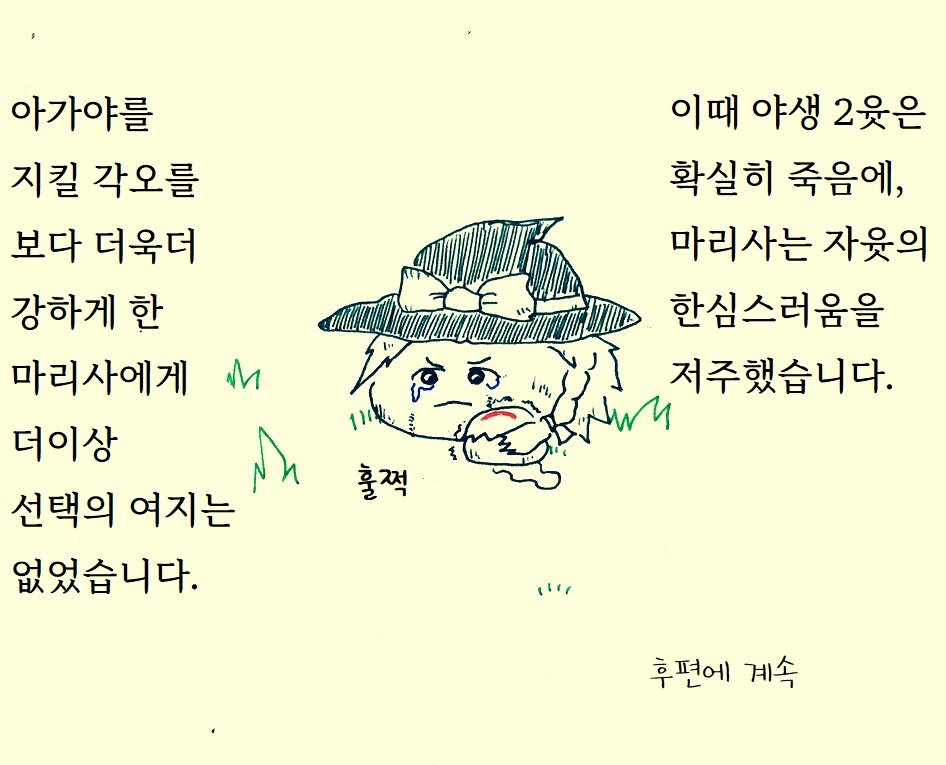 이때 야생 2윳은
확실히 죽음에,
마리사는 자윳의
한심스러움을
저주했습니다.
아가야를
지킬 각오를
보다 더욱더
강하게 한
마리사에게
더이상
선택의 여지는
없었습니다.
훌쩍
후편에 계속